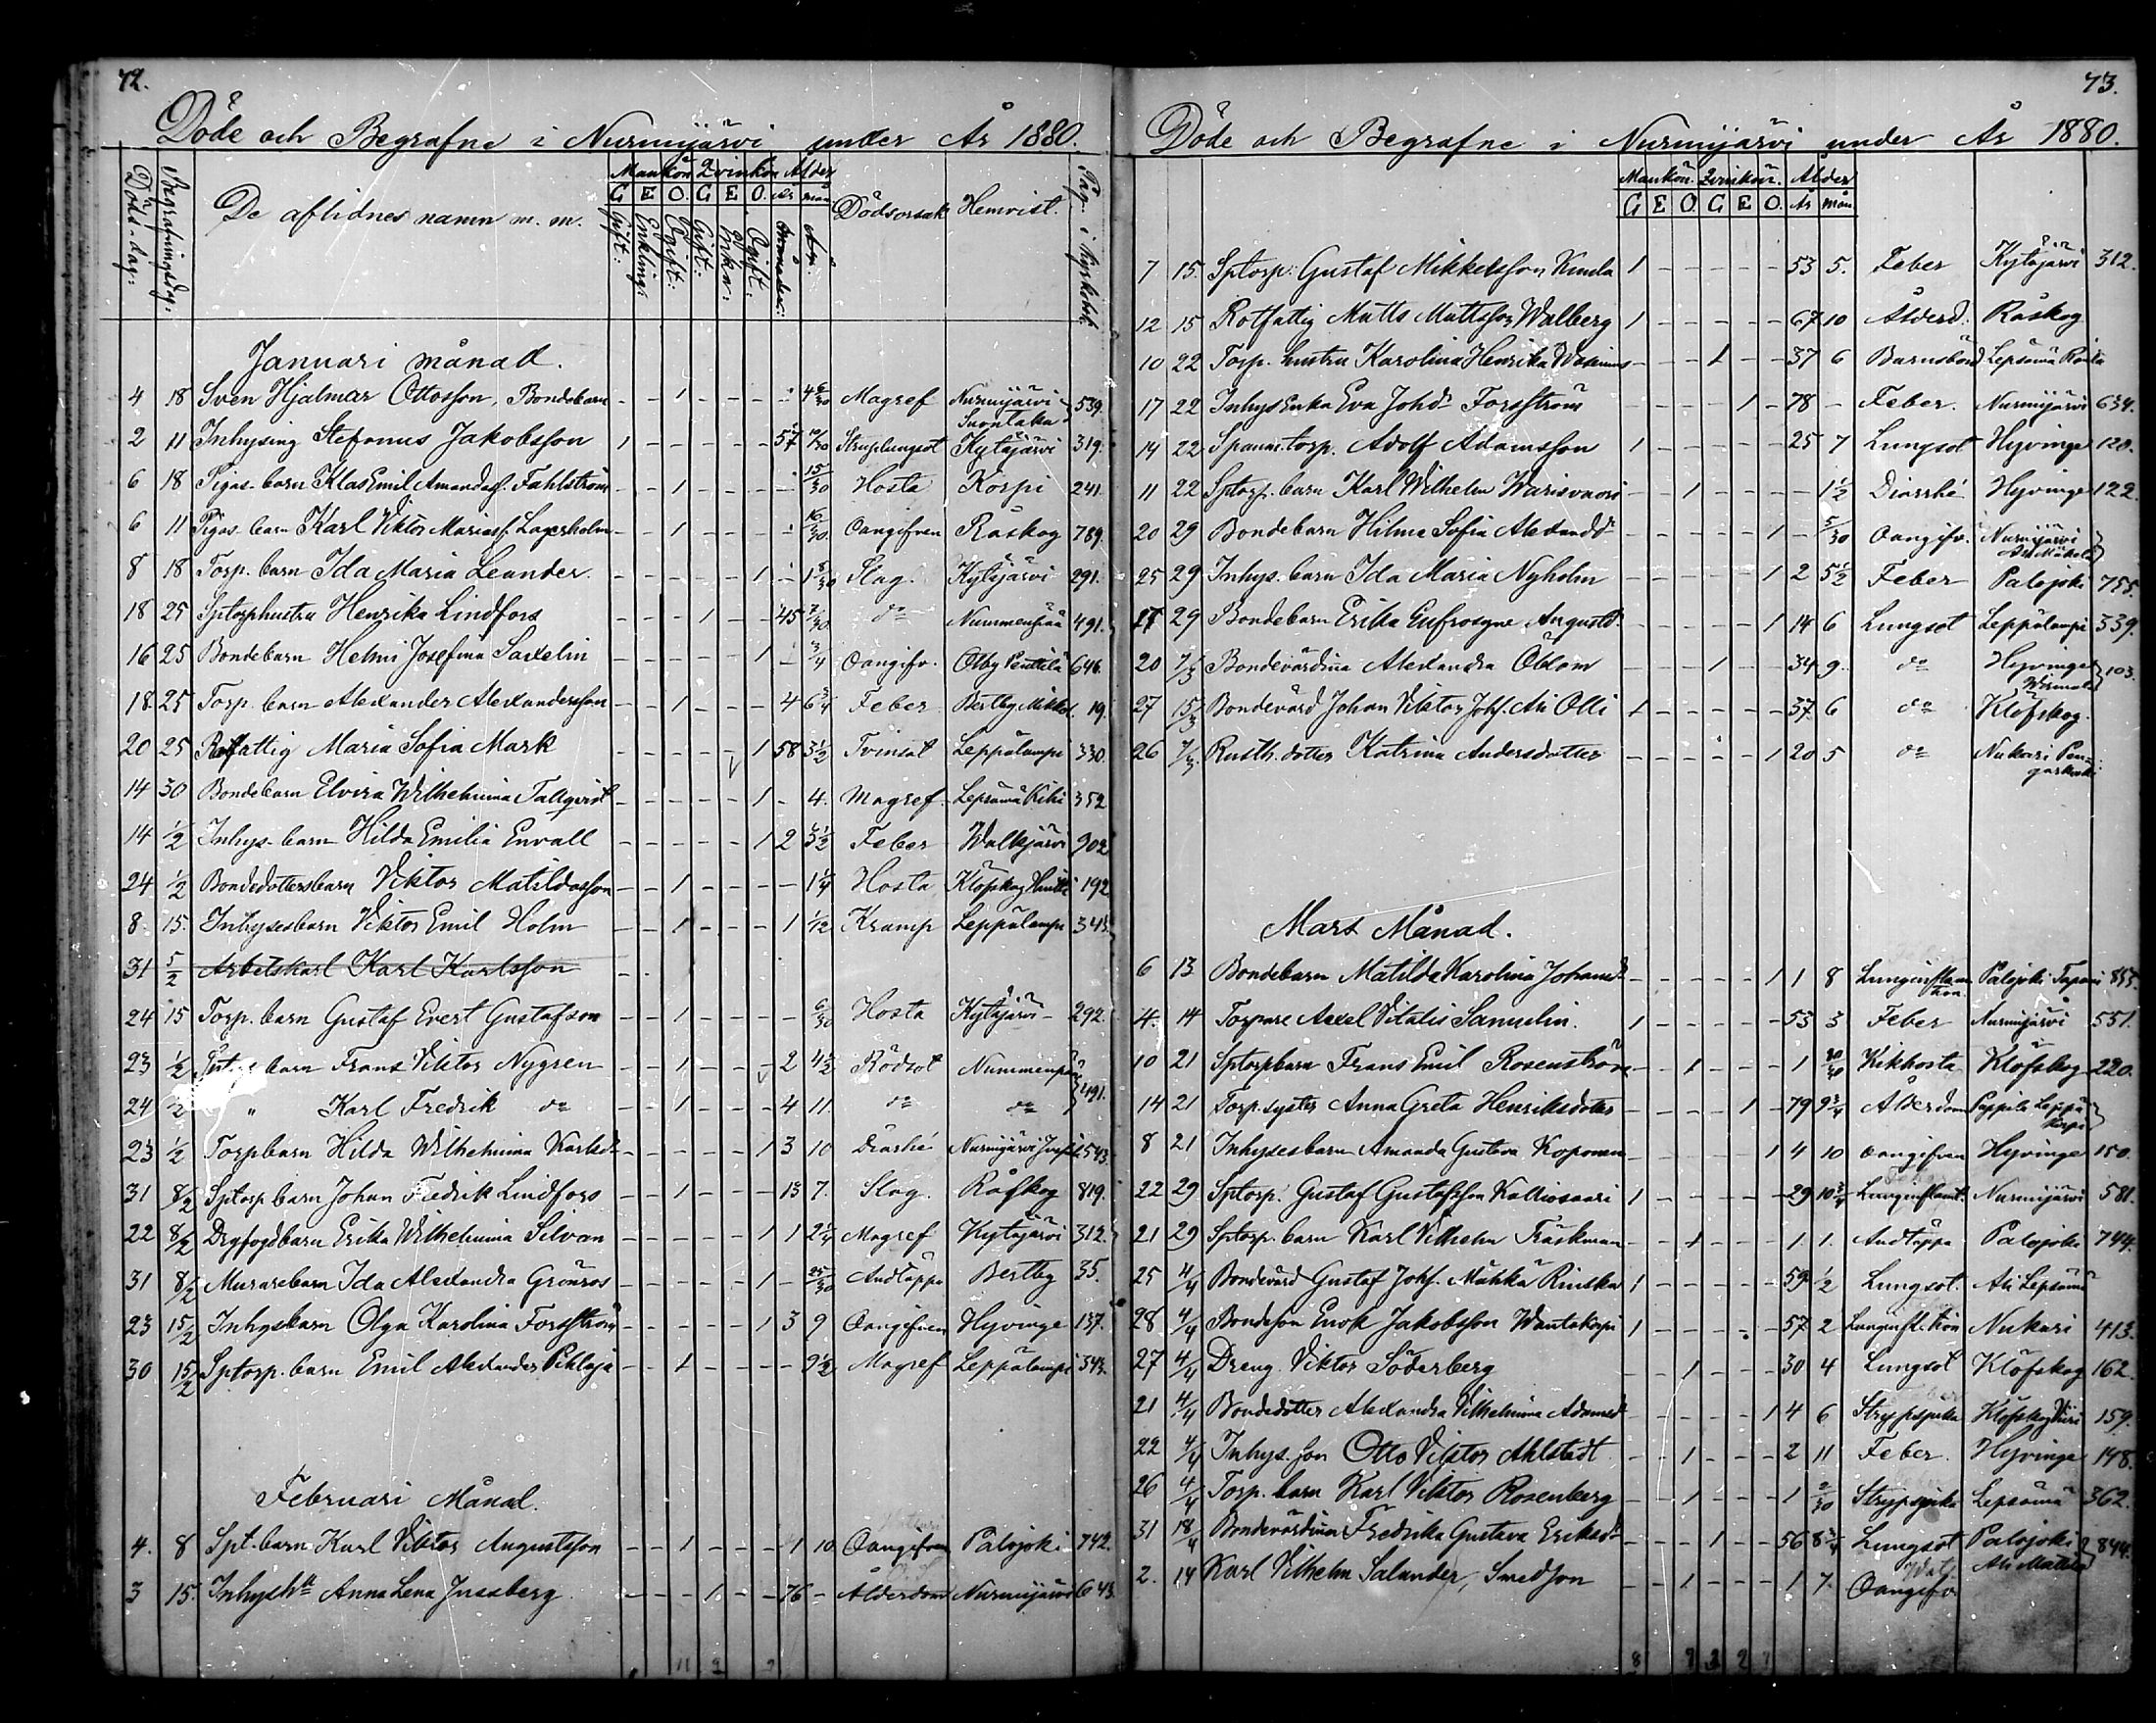 72.
Döde och Begrafne i Nurmijärvi under År 1880.
Döds-dag: Begrafningsdag: De aflidnes namn m. m. Mankön Qvinkön Ålder Dödsorsak Hemvist. Pag. i kyrkobok
G E O. G E O. År mån
Gift: Enkling: Ogift: Gift: Enka: Ogift:
Januari månad.
4 18 Sven Hjalmar Ottosson, Bondebarn - - 1 - - - - 4 6/30 Magref Nurmijärvi Suontaka 539.
2 11 Inhysing Stefanus Jakobsson 1 - - - - - 57 10/30 Struplungsot Kytäjärvi 319.
6 18 Pigas barn Klas Emil Amandasf. Fahlström - - 1 - - - - 15/30 Hosta Korpi 241
6 11 Pigas barn Karl Viktor Mariasf. Lagerholm - - 1 - - - - 16/30 Oangifven Råskog 789.
8 18 Torp. barn Ida Maria Leander. - - - - - 1 - 1 8/30 Slag. Kytäjärvi 291.
18 25 Sptorphustru Henrika Lindfors - - - 1 - - 45 7/30 do Nummenpää 491.
16 25 Bondebarn Helmi Josefina Saxelin - - - - - 1 - 3/4 Oangifv. Olby Penttilä 646.
18. 25 Torp. barn Alexander Alexandersson - - 1 - - - 4 6 3/4 Feber Bertby Mikkol. 19.
20 25 Rotfattig Maria Sofia Mark - - - - - 1 58 3 1/2 Tvinsot Leppälampi 330.
14 30 Bondebarn Elvira Wilhelmina Tallqvist - - - - - 1 - 4. Magref Lepsämä Kihi 352
14 1/2 Inhys. barn Hilda Emilia Envall - - - - - 1 2 3 1/2 Feber Walkjärvi 902
24 1/2 Bondedottersbarn Viktor Matildasson - - 1 - - - - 1 1/4 Hosta Klöfskog 192
8. 15. Inhysesbarn Viktor Emil Holm - - 1 - - - 1 1/2 Kramp Leppälampi 343.
31 5/2 Arbetskarl Karl Karlsson - -
24 15 Torp. barn Gustaf Evert Gustafson - - 1 - - - - 6/30 Hosta Kytäjärvi 292.
23 1/2 barn Frans Viktor Nygren - - 1 - - - 2 4 1/2 Rödsot Nummenpää
24 1/2 " Karl Fredrik do - - 1 - - - 4 11. do do 491.
23 1/2 Torpbarn Hilda Wilhelmina Karlsdr - - - - - 1 3 10 Diarhé Nurmijärvi 543.
31 8/2 Sptorp barn Johan Fredrik Lindfors - - 1 - - - 13 7. Slag. Råskog 819.
22 8/2 Drgfogdbarn Erika Wilhelmina Silvan - - - - - 1 1 2 1/4 Magref Kytäjärvi 312.
31 8/2 Murarebarn Ida Alexandra Grönros - - - - - 1 - 25/30 Andtäppa Bertby 35.
23 15/2 Inhysbarn Olga Karolina Forsström - - - - - 1 3 9 Oangifven Hyvinge 137.
30 15/2 Sptorp. barn Emil Alexander Pihlaja - - 1 - - - - 9 1/2 Magref Leppälampi 343.
Februari Månad.
4. 8 Spt. barn Karl Viktor Augustsson - - 1 - - - 1 10 Oangifven Palojoki 742.
3 15. Inhysh. Anna Lena Jussberg - - - 1 - - 76 - Ålderdom Nurmijärvi 643.
73.
Döde och Begrafne i Nurmijärvi under År 1880.
Mankön. Qvinkön. Ålder
G E O. G E O. År mån
7 15. Sptorp: Gustaf Mikkelsson Kunda 1 - - - - - 53 5. Feber Kytäjärvi 312.
12 15 Rotfattig Matts Mattsson Walberg 1 - - - - - 67 10 Ålderd. Råskog
10 22 Torp. hustru Karolina Henrika Wasenius - - - 1 - - 37 6 Barnsbörd Lepsämä
17 22 Inhys Enka Eva Johdr Forsström - - - - 1 - 78 - Feber. Nurmijärvi 634.
14 22 Spanm. torp. Adolf Adamsson 1 - - - - - 25 7 Lungsot Hyvinge 120.
11 22 Sptorp. barn Karl Wilhelm Warisvuori - - 1 - - - - 1 1/2 Diarrhé Hyvinge 122.
20 29 Bondebarn Hilma Sofia Alexandd - - - - - 1 - 5/30 Oangifv. Nurmijärvi
25 29 Inhys. barn Ida Maria Nyholm - - - - - 1 2 5 1/2 Feber Palojoki 755.
17 29 Bondebarn Erika Eufrosyne Augustd. - - - - - 1 14 6 Lungsot Leppälampi 339.
20 7/3 Bondevärdina Alexandra Öblom - - - 1 - - 34 9. do Hyvinge 103.
27 15/3 Bondevärd Johan Viktor Johf. Ali Olli 1 - - - - - 37 6 do Klöfskog.
26 7/3 Rusth. dotter Katrina Andersdotter - - - - - 1 20 5 do Nukari
Mars Månad.
6 13 Bondebarn Matilda Karolina Johansdr - - - - - 1 1 8 Lunginflammation Palojoki Tapani 855.
4. 14 Torpare Axel Vitalis Samulin. 1 - - - - - 53 3 Feber Nurmijärvi 551.
10 21 Sptorpbarn Frans Emil Rosenström - - 1 - - - 1 20/30 Kikhosta Klöfskog 220.
14 21 Torp. syster Anna Greta Henriksdotter - - - - 1 - 79 9 3/4 Ålderdom
8 21 Inhysesbarn Amanda Gustava Koponen - - - - - 1 4 10 oangifven Hyvinge 150.
22 29 Sptorp. Gustaf Gustafsson Kalliosaari 1 - - - - - 29 10 3/4 Lunginflamt. Nurmijärvi 581.
21 29 Sptorp. barn Karl Vilhelm Träskman - - 1 - - - 1. 1. Andtäppa Palojoki 744.
25 4/4 Bondevärd Gustaf Johf. Mähkä Rinska 1 - - - - - 59 1/2 Lungsot. Ali Lepsämä
28 4/4 Bondeson Enok Jakobsson Wantakorpi 1 - - - - - 57 2 Lunginfl.tion Nukari 413.
27 4/4 Dreng Viktor Söderberg - - 1 - - - 30 4 Lungsot Klöfskog 162.
21 4/4 Bondedotter Alexandra Vilhelmina Adamsd - - - - - 1 4 6 Strypsjuka Klöfskog 159.
22 4/4 Inhys. son Otto Viktor Ahlstedt - - 1 - - - 2 11 Feber. Hyvinge 148.
26 4/4 Torp. barn Karl Viktor Rosenberg - - 1 - - - 1 2/30 Strypsjuka Lepsämä 362.
31 18/4 Bondevärdina Fredrika Gustava Eriksdr - - - 1 - - 56 8 3/4 Lungsot Palojoki Ali Mattila 844.
2. 14 Karl Vilhelm Salander, Smedson - - 1 - - - 1 7. Oangifv